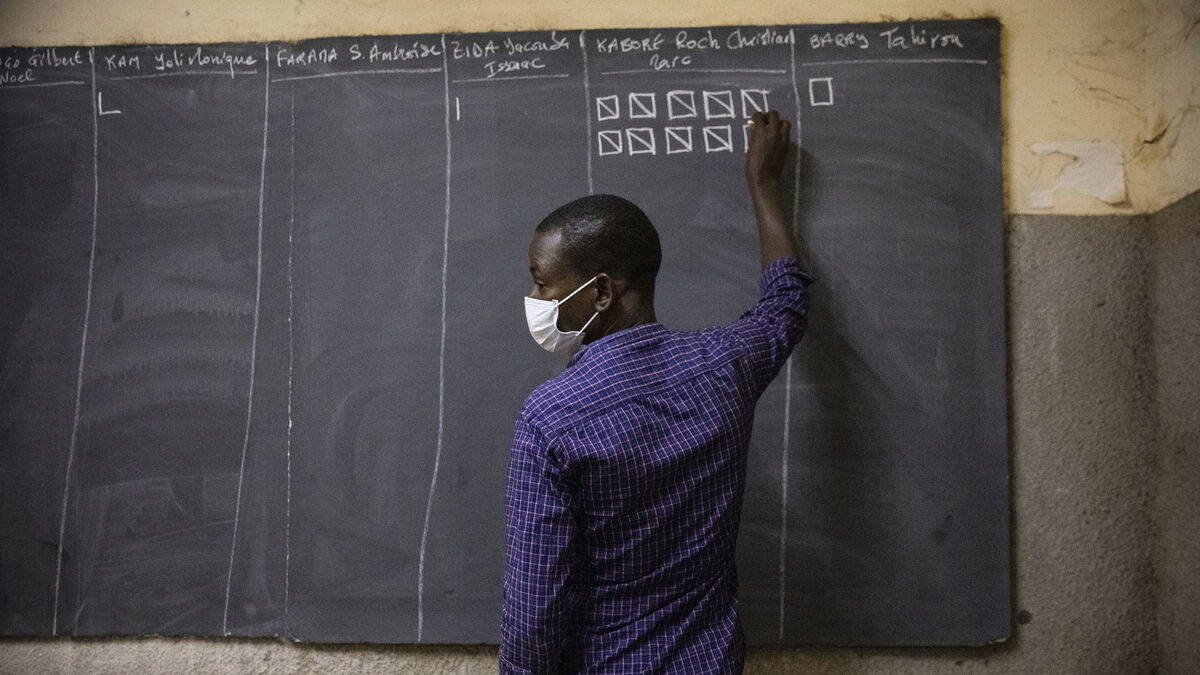 Gilbert
Noel
KAM Yeli Monique
FARAMA S. Ambroise
ZIDA Yacouba
Issaac
KABORÉ Roch Christian
Marc
BARRY Tahirou